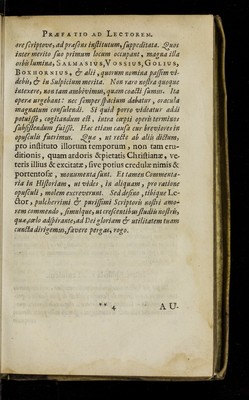 PRÆFATIO AD LECTOREM.
ore scriptove, ad præsens institutum, suppeditata. Quos
inter merito suo primum locum occupant, magna illa
orbis lumina, SALMASIUS, VOSSIUS, GOLIUS,
BOXHORNIUS, & alii, quorum nomina passim vi-
debis, & in Sulpicium merita. Non raro nostra quoque
intexere, non tam ambivimus, quam coacti sumus. Ita
opera urgebant: nec semper spatium dabatur, oracula
magnatum consulendi. Si quid porro videatur addi
potuisse, cogitandum est, intra cæpti operis terminos
subsistendum fuisse. Hac etiam causa cur breviores in
opusculis fuerimus. Quæ, ut recte ab aliis dictum,
pro instituto illorum temporum, non tam eru-
ditionis, quam ardoris & pietatis Christianæ, ve-
teris illius & excitatæ, sive potius credulæ nimis &
portentosæ, monumenta sunt. Et tamen Commenta-
ria in Historiam, ut vides, in aliquam, pro ratione
opusculi, molem excreverunt. Sed desino, tibique Le-
ctor, pulcherrimi & purissimi Scriptoris nostri amo-
rem commendo, simulque, ut crescentibus studiis nostris,
quæ, cælo adspirante, ad Dei gloriam & utilitatem tuam
cuncta dirigemus, favere pergas, rogo.
** 4 AU-